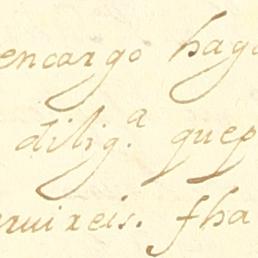 encargo haga
dilig.ª quep
ruixeis. fha